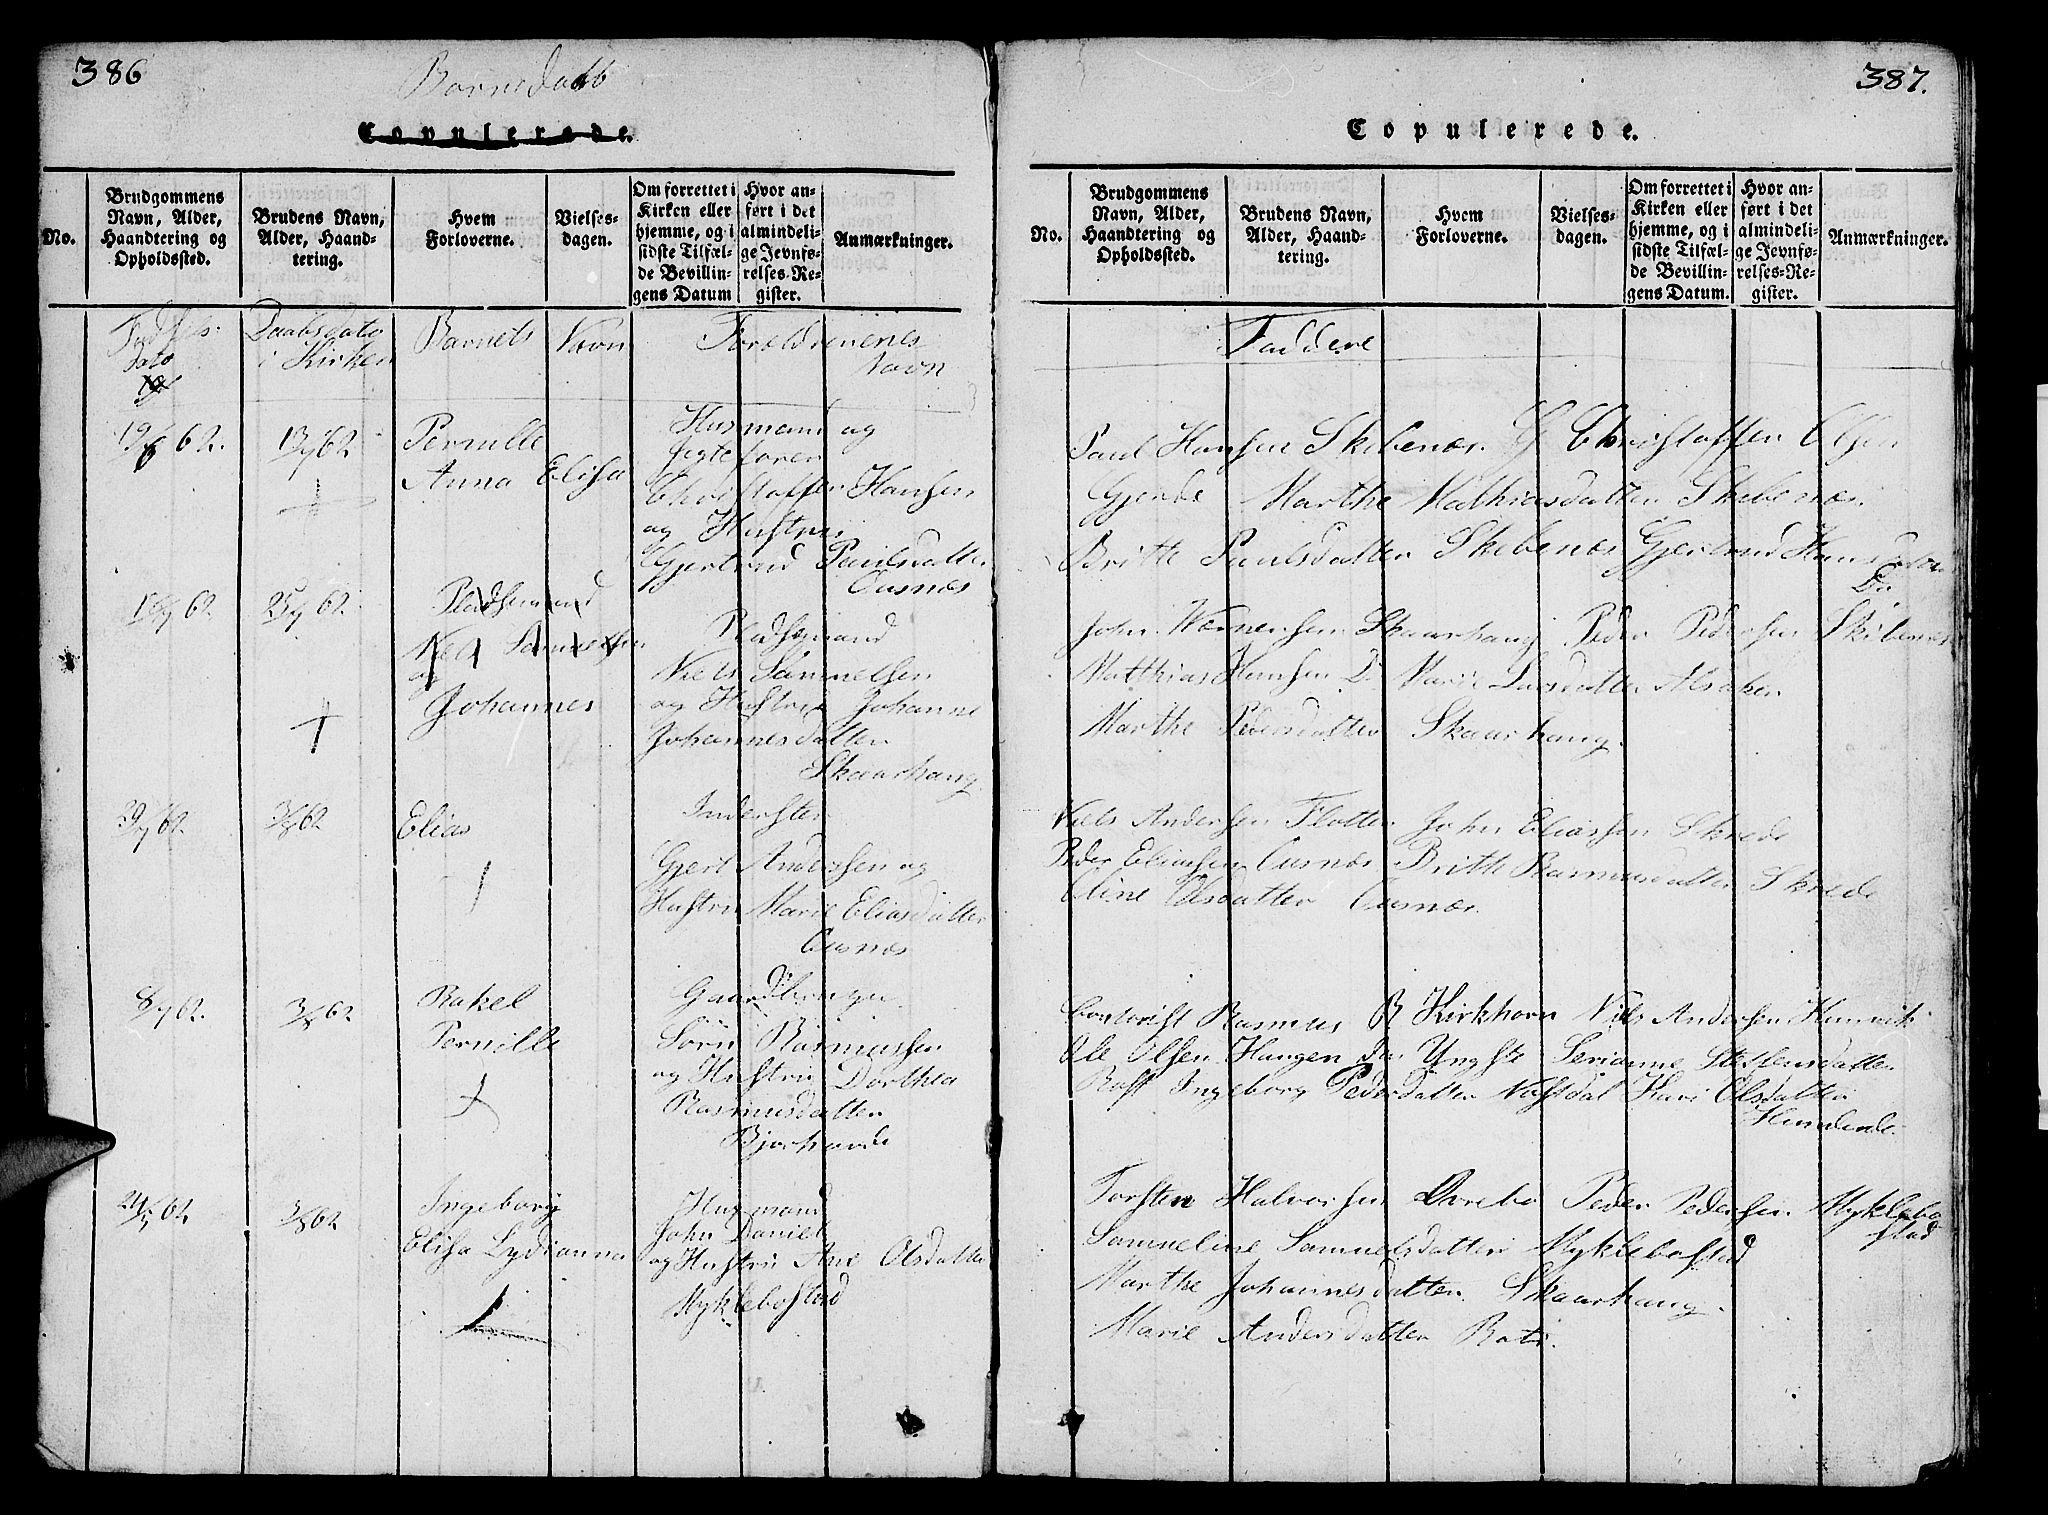 386
Barnedaab
Copulerede.
No.
Brudgommens Navn, Alder, Haandtering og Opholdssted.
Brudens Navn, Alder, Haandtering.
Hvem Forloverne.
Vielsesdagen.
Om forrettet i Kirken eller hjemme, og i sidste Tilfælde Bevillingens Datum
Hvor anført i det almindelige Jevnførelses-Register.
Anmærkninger.
Fødsels dato
Daabsdato i Kirken
Barnets Navn
Forældrenenes Navn
19/6 62.
13/7 62
Pernille
Anna Elisa
Husmand og
Christoffer Hansen
og Hustru
Gjertrud Paulsdatter
Ousnes
62
25/7 62.
Pladsemand
Niels Samuelsen
og
Johannes
Pladsemand
Niels Samuelsen
og Hustru Johanne
Johannesdatter
Skaarhaug
62.
3/8 62
Elias
Inderster
Gjert Anderssen og
Hustru Marie Eliasdatter
Ousnes
8/7 62.
3/8 62
Rakel
Pernille
Gaardbruger
Sørn Rasmussen
og Hustru Dorthea
Rasmusdatter
24/7 62
3/8 62
Ingeborg
Elisa Lydianna
Husmand
John Daniel
og Hustru Ane Olsdatter
Myklebostad
387.
Copulerede.
No.
Brudgommens Navn, Alder, Haandtering og Opholdssted.
Brudens Navn, Alder, Haandtering.
Hvem Forloverne.
Vielsesdagen.
Om forrettet i Kirken eller hjemme, og i sidste Tilfælde Bevillingens Datum.
Hvor anført i det almindelige Jevnførelses-Register.
Anmærkninger.
Faddere
Paul Hansen Skebenæs. G Christoffer Olsen
Gjerde Marthe Mathiasdatter Skebenæs.
Britte Paulsdatter Skebenæs Gjertrud Hansdatter
Do
John Skaarhaug Peder Pedersen Skebenæs
Matthias Hansen Do Marie Larsdatter Alsaker
Marthe Pedersdatter Skaarhaug.
Niels Andersen Flotten John Eliassen Skrede
Peder Eliassen Ousnæs Britte Rasmusdatter Skrede
Oline Olsdatter Ousnæs.
Contorist Rasmus B Kirkhorn Niels Andersen
Ole Olsen Haugen Yngste Serianne Steffensdatter
Ingeborg Pedersdatter Kari Olsdatter
Torsten Halvorsen Peder Pedersen Myklebostad
Samueline Samuelsdatter Myklebostad
Marthe Johannesdatter Skaarhaug.
Marie Andersdatter